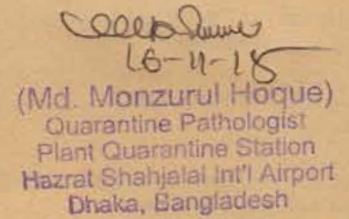 16-11-15
(Md. Monzurul Hoque)
Quarantine Pathologist
Plant Quarantine Station
Hazrat Shahjalal Int'l Airport
Dhaka, Bangladesh